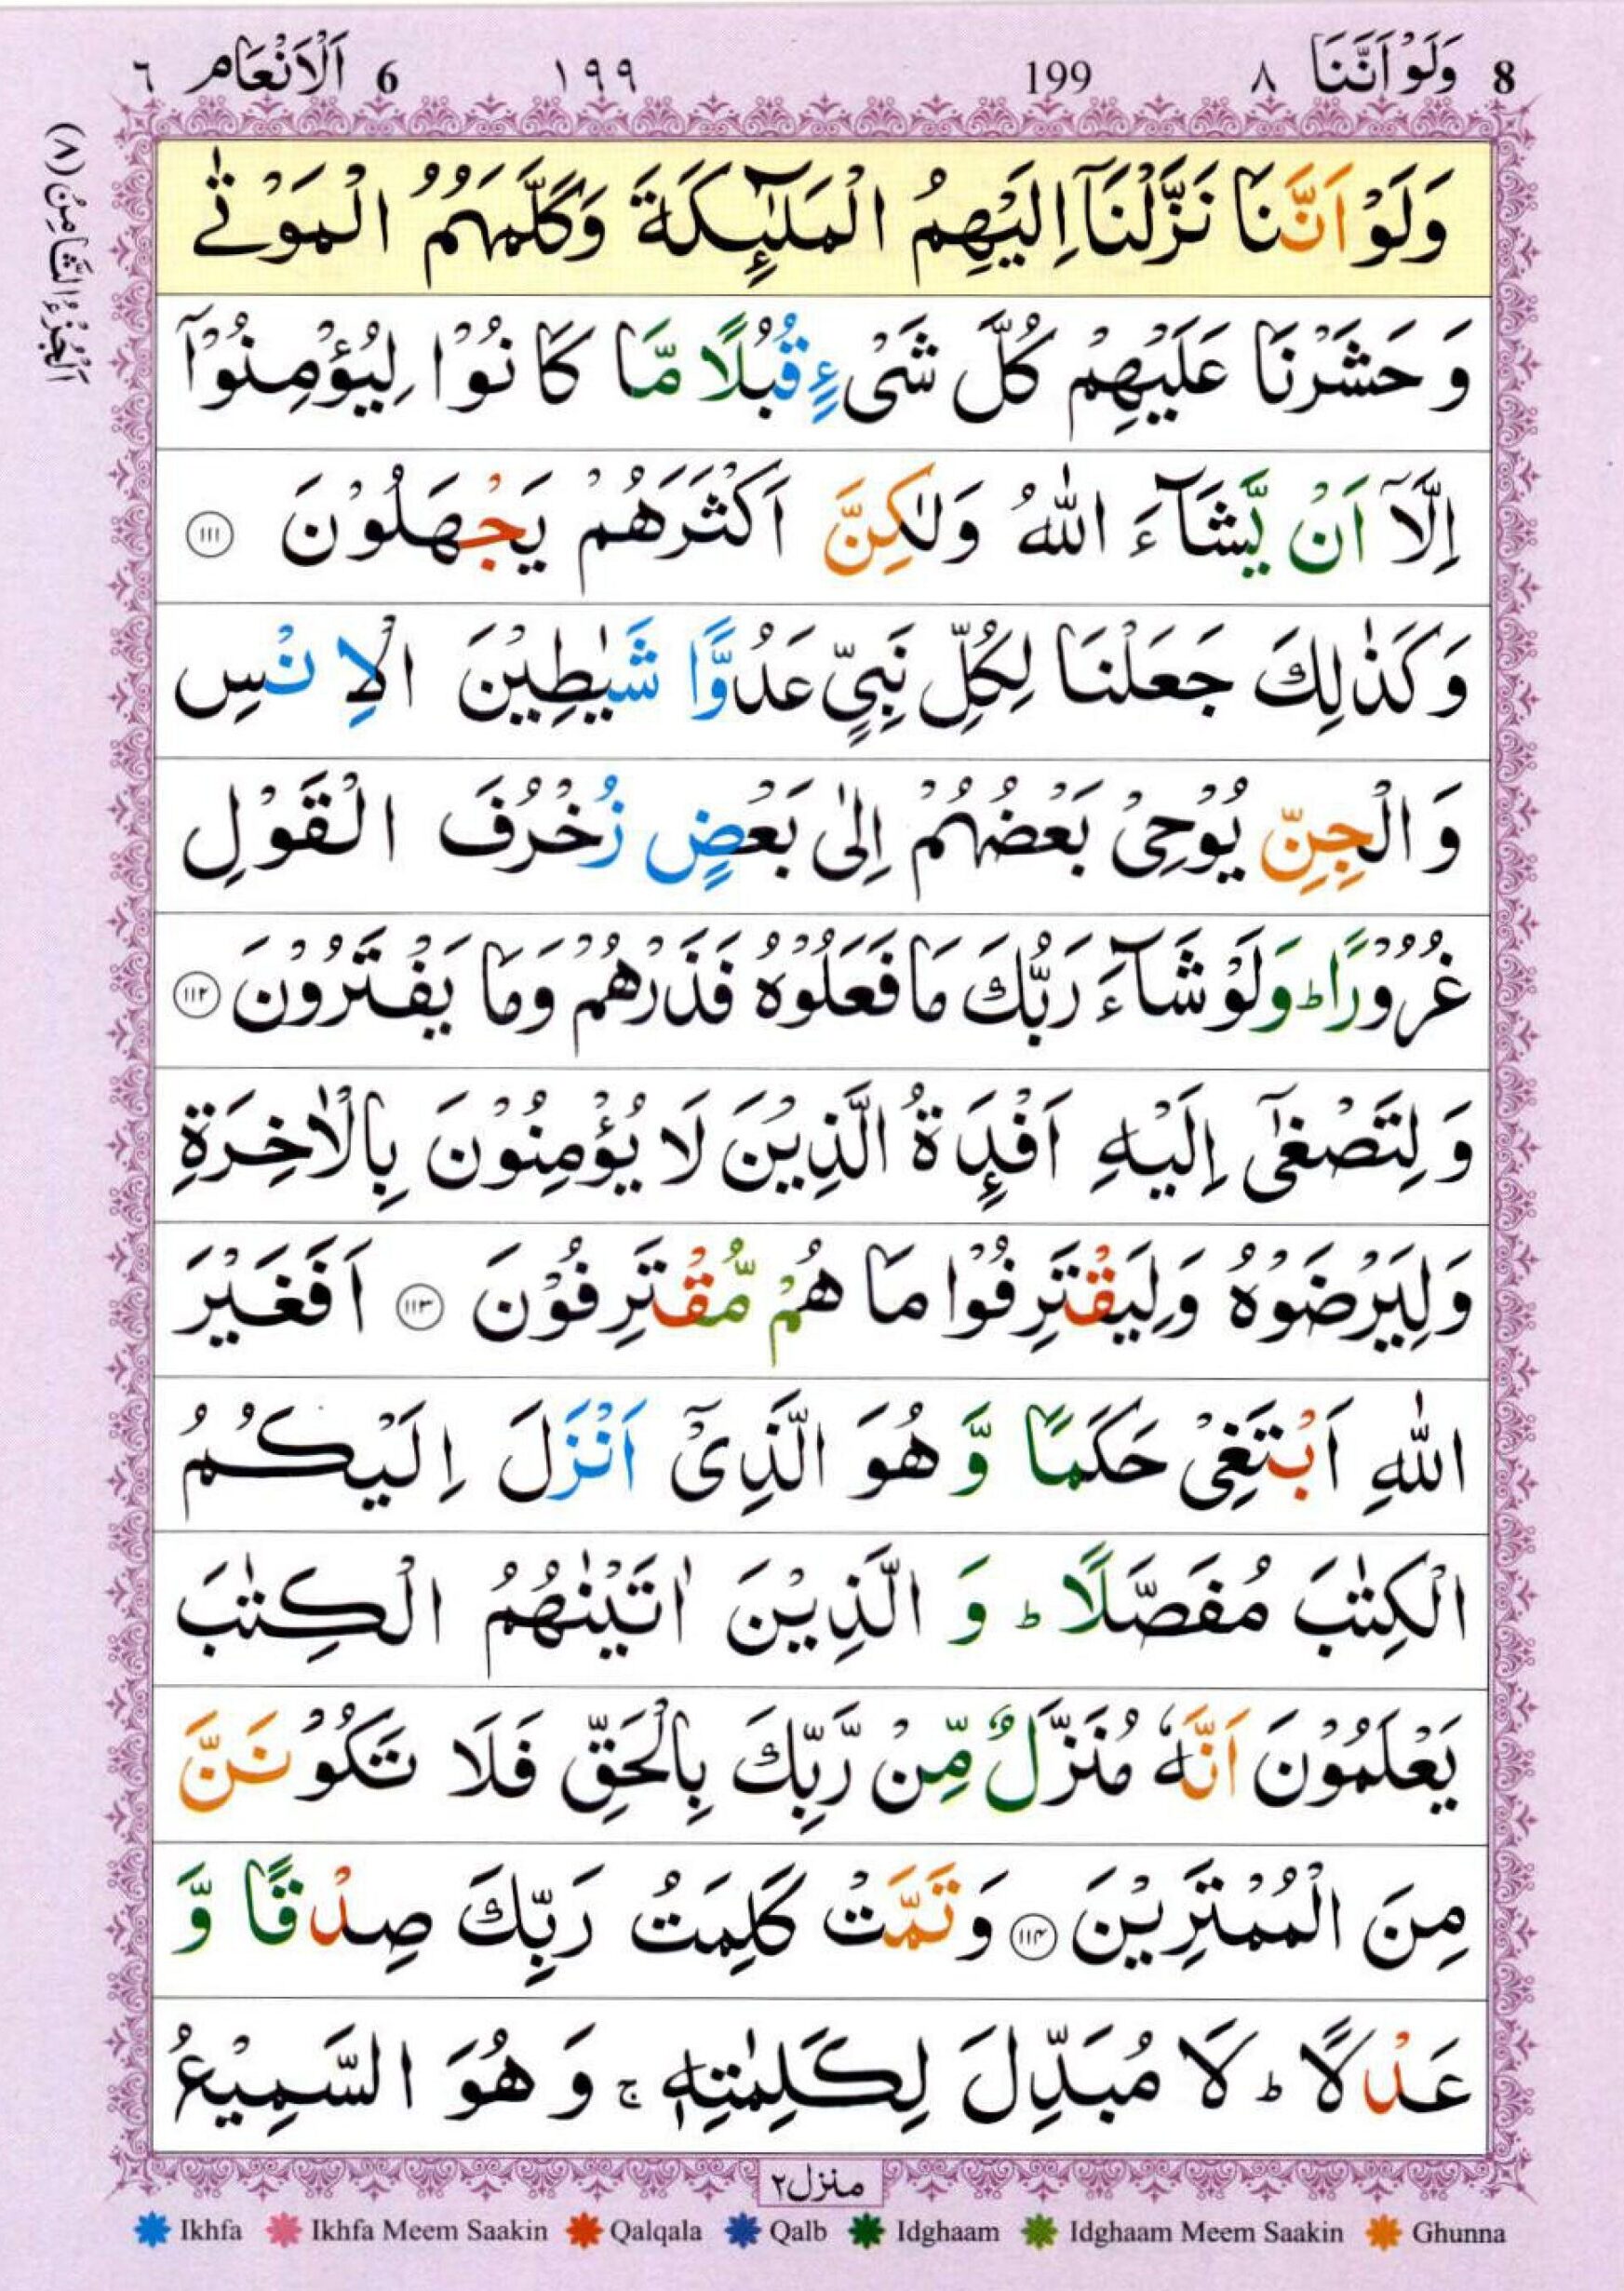 8 وَلَوْ اَنَّنَا ٨ 199 ١٩٩ 6 اَلْاَنْعَام ٦
اَلْجُزْءُ الثَّامِنُ (٨)
وَلَوْ اَنَّنَا نَزَّلْنَاۤ اِلَيْهِمُ الْمَلٰٓئِكَةَ وَكَلَّمَهُمُ الْمَوْتٰى
وَ حَشَرْنَا عَلَيْهِمْ كُلَّ شَیْءٍ قُبُلًا مَّا كَانُوْا لِيُؤْمِنُوْۤا
اِلَّاۤ اَنْ يَّشَآءَ اللّٰهُ وَلٰكِنَّ اَكْثَرَهُمْ يَجْهَلُوْنَ ۝۱۱۱
وَكَذٰلِكَ جَعَلْنَا لِكُلِّ نَبِیٍّ عَدُوًّا شَيٰطِيْنَ الْاِنْسِ
وَ الْجِنِّ يُوْحِیْ بَعْضُهُمْ اِلٰى بَعْضٍ زُخْرُفَ الْقَوْلِ
غُرُوْرًا ؕ وَلَوْ شَآءَ رَبُّكَ مَا فَعَلُوْهُ فَذَرْهُمْ وَمَا يَفْتَرُوْنَ ۝۱۱۲
وَ لِتَصْغٰۤى اِلَيْهِ اَفْـِٕدَةُ الَّذِيْنَ لَا يُؤْمِنُوْنَ بِالْاٰخِرَةِ
وَلِيَرْضَوْهُ وَلِيَقْتَرِفُوْا مَا هُمْ مُّقْتَرِفُوْنَ ۝۱۱۳ اَفَغَيْرَ
اللّٰهِ اَبْتَغِیْ حَكَمًا وَّ هُوَ الَّذِیْۤ اَنْزَلَ اِلَيْكُمُ
الْكِتٰبَ مُفَصَّلًا ؕ وَ الَّذِيْنَ اٰتَيْنٰهُمُ الْكِتٰبَ
يَعْلَمُوْنَ اَنَّهٗ مُنَزَّلٌ مِّنْ رَّبِّكَ بِالْحَقِّ فَلَا تَكُوْنَنَّ
مِنَ الْمُمْتَرِيْنَ ۝۱۱۴ وَتَمَّتْ كَلِمَتُ رَبِّكَ صِدْقًا وَّ
عَدْلًا ؕ لَا مُبَدِّلَ لِكَلِمٰتِهٖ ۚ وَ هُوَ السَّمِيْعُ
منزل ٢
Ikhfa Ikhfa Meem Saakin Qalqala Qalb Idghaam Idghaam Meem Saakin Ghunna